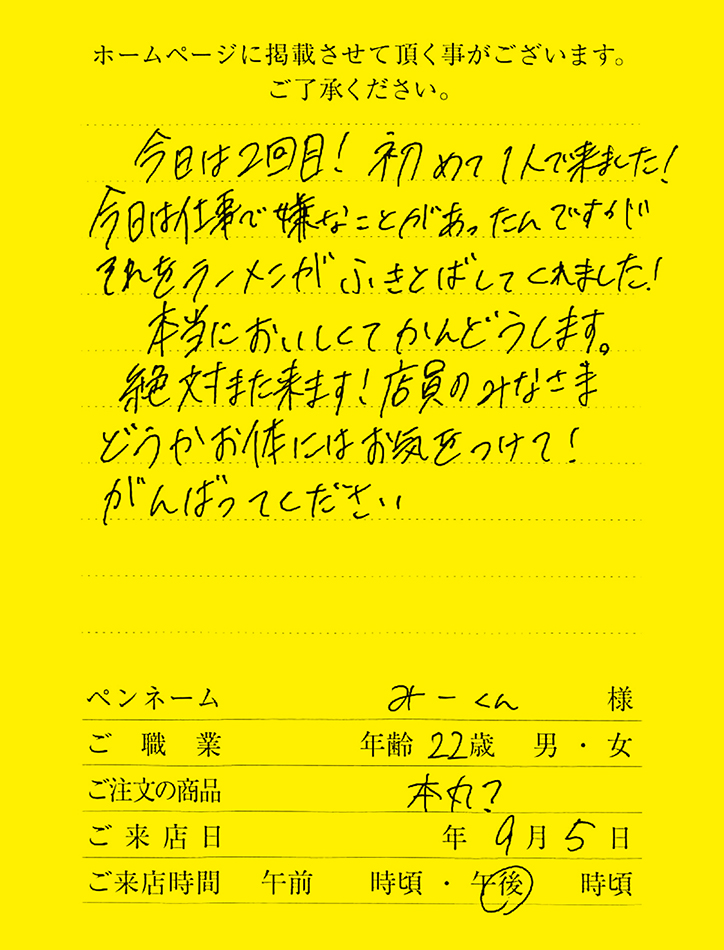 ホームページに掲載させて頂く事がございます。
ご了承ください。
今日は2回目！初めて1人で来ました！
今日は仕事で嫌なことがあったんですが
それをラーメンがふきとばしてくれました！
本当においしくてかんどうします。
絶対また来ます！店員のみなさま
どうかお体にはお気をつけて！
がんばってください
ペンネーム みーくん 様
ご職業 年齢 22歳 男・女
ご注文の商品 本丸？
ご来店日 年 9月5日
ご来店時間 午前 時頃・午後 時頃